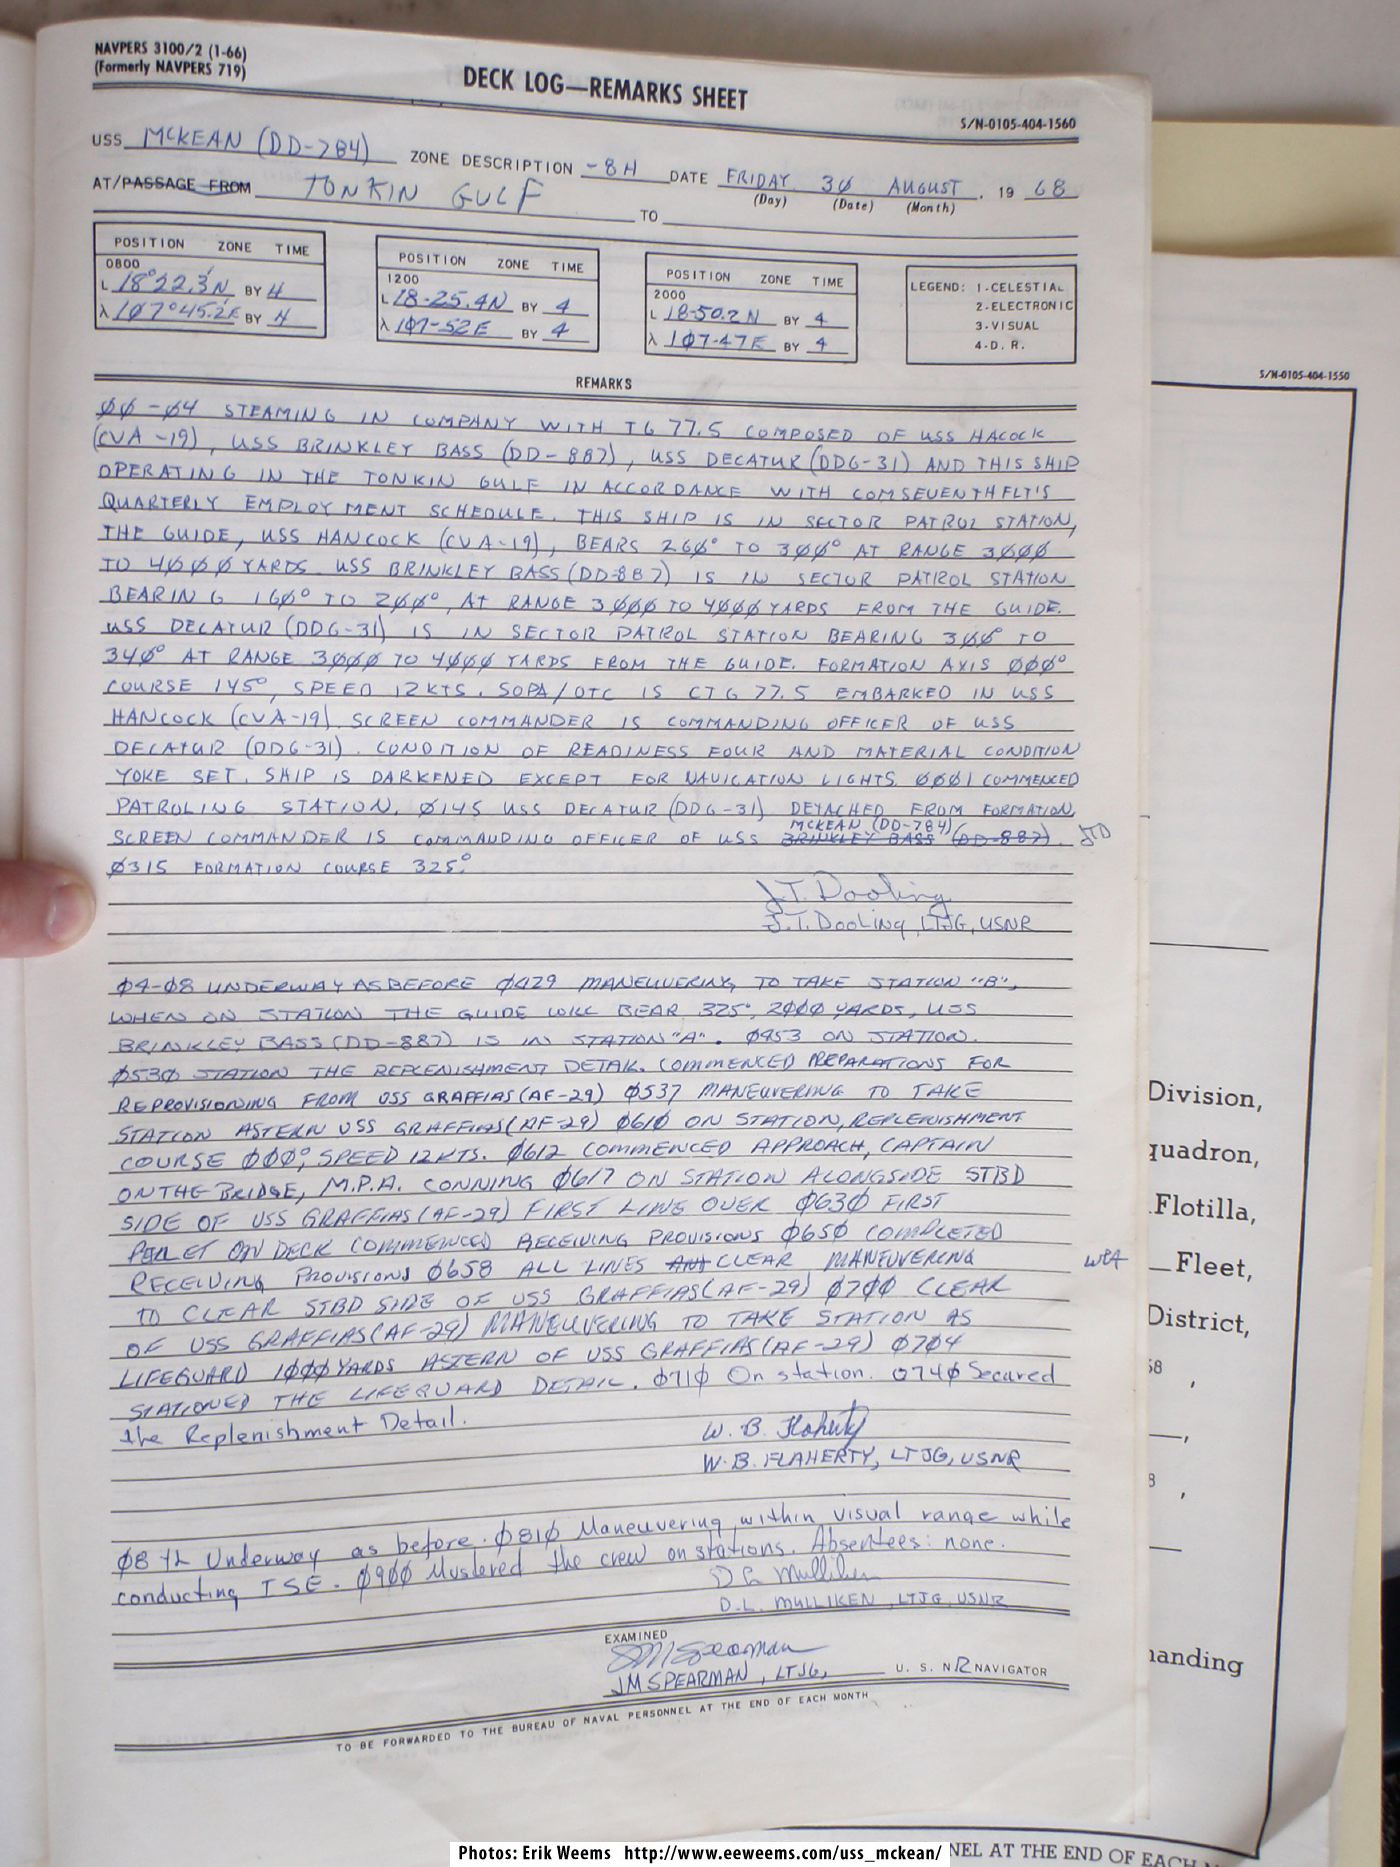 NAVPERS 3100/2 (1-66)
(Formerly NAVPERS 719)
DECK LOG—REMARKS SHEET
S/N-0105-404-1560
USS MCKEAN (DD-784) ZONE DESCRIPTION -8H DATE FRIDAY 3Ø AUGUST, 19 68
(Day) (Date) (Month)
AT/PASSAGE FROM TONKIN GULF TO
POSITION ZONE TIME
0800
L 18°22.3'N BY 4
λ 107°45.2'E BY 4
POSITION ZONE TIME
1200
L 18-25.4N BY 4
λ 1Ø7-52E BY 4
POSITION ZONE TIME
2000
L 18-50.2N BY 4
λ 1Ø7-47E BY 4
LEGEND: 1-CELESTIAL
2-ELECTRONIC
3-VISUAL
4-D. R.
REMARKS
ØØ-Ø4 STEAMING IN COMPANY WITH TG 77.5 COMPOSED OF USS HACOCK
(CVA-19), USS BRINKLEY BASS (DD-887), USS DECATUR (DDG-31) AND THIS SHIP
OPERATING IN THE TONKIN GULF IN ACCORDANCE WITH COMSEVENTHFLT'S
QUARTERLY EMPLOYMENT SCHEDULE. THIS SHIP IS IN SECTOR PATROL STATION,
THE GUIDE, USS HANCOCK (CVA-19), BEARS 26Ø° TO 3ØØ° AT RANGE 3ØØØ
TO 4ØØØ YARDS. USS BRINKLEY BASS (DD-887) IS IN SECTOR PATROL STATION
BEARING 16Ø° TO 2ØØ°, AT RANGE 3ØØØ TO 4ØØØ YARDS FROM THE GUIDE.
USS DECATUR (DDG-31) IS IN SECTOR PATROL STATION BEARING 3ØØ° TO
34Ø° AT RANGE 3ØØØ TO 4ØØØ YARDS FROM THE GUIDE. FORMATION AXIS ØØØ°
COURSE 145°, SPEED 12KTS. SOPA/OTC IS CTG 77.5 EMBARKED IN USS
HANCOCK (CVA-19). SCREEN COMMANDER IS COMMANDING OFFICER OF USS
DECATUR (DDG-31). CONDITION OF READINESS FOUR AND MATERIAL CONDITION
YOKE SET. SHIP IS DARKENED EXCEPT FOR NAVIGATION LIGHTS. ØØØ1 COMMENCED
PATROLING STATION. Ø145 USS DECATUR (DDG-31) DETACHED FROM FORMATION,
MCKEAN (DD-784)
SCREEN COMMANDER IS COMMANDING OFFICER OF USS BRINKLEY BASS (DD-887). JTD
Ø315 FORMATION COURSE 325°.
J.T. Dooling
J.T. Dooling, LTJG, USNR
Ø4-Ø8 UNDERWAY AS BEFORE Ø429 MANEUVERING TO TAKE STATION "B",
WHEN ON STATION THE GUIDE WILL BEAR 325°, 2ØØØ YARDS, USS
BRINKLEY BASS (DD-887) IS IN STATION "A". Ø453 ON STATION.
Ø53Ø STATION THE REPLENISHMENT DETAIL. COMMENCED PREPARATIONS FOR
REPROVISIONING FROM USS GRAFFIAS (AF-29) Ø537 MANEUVERING TO TAKE
STATION ASTERN USS GRAFFIAS (AF-29) Ø61Ø ON STATION, REPLENISHMENT
COURSE ØØØ°, SPEED 12KTS. Ø612 COMMENCED APPROACH, CAPTAIN
ON THE BRIDGE, M.P.A. CONNING Ø617 ON STATION ALONGSIDE STBD
SIDE OF USS GRAFFIAS (AF-29) FIRST LINE OVER Ø63Ø FIRST
PALLET ON DECK COMMENCED RECEIVING PROVISIONS Ø65Ø COMPLETED
RECEIVING PROVISIONS Ø658 ALL LINES CLEAR MANEUVERING
TO CLEAR STBD SIDE OF USS GRAFFIAS (AF-29) Ø7ØØ CLEAR
OF USS GRAFFIAS (AF-29) MANEUVERING TO TAKE STATION AS
LIFEGUARD 1ØØØ YARDS ASTERN OF USS GRAFFIAS (AF-29) Ø7Ø4
STATIONED THE LIFEGUARD DETAIL. Ø71Ø On station. Ø74Ø Secured
the Replenishment Detail.
W. B. Flaherty
W.B. FLAHERTY, LTJG, USNR
Underway as before. Ø81Ø Maneuvering within visual range while
conducting ISE. Ø9ØØ Mustered the crew on stations. Absentees: none.
D L Mulliken
D.L. MULLIKEN, LTJG, USNR
EXAMINED
JM Spearman
JM SPEARMAN, LTJG, U. S. N R NAVIGATOR
TO BE FORWARDED TO THE BUREAU OF NAVAL PERSONNEL AT THE END OF EACH MONTH
S/N-0105-404-1550
Division,
quadron,
Flotilla,
Fleet,
District,
58 ,
,
8 ,
anding
NEL AT THE END OF EACH
Photos: Erik Weems http://www.eeweems.com/uss_mckean/